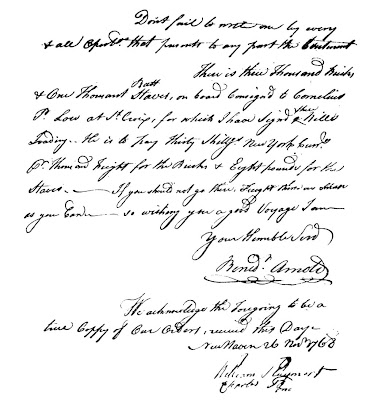 Dont fail to write me by every
& all Oportys. that presents to any part the Continent
There is three Thousand Bricks
& One Thousand Staves, on board Consign'd to Cornelius
Low at St. Croix, for which I have Sign'd the Bills
Loading. He is to pay thirty Shills. New York Curry.
Pr. Thousand freight for the Bricks & Eight pounds for the
Staves. — If you should not go there, freight them as
as you Can — so wishing you a good Voyage I am
Your Humble Servt
Bened't. Arnold
We acknowledge the foregoing to be a
true Coppy of Our Orders, received this Day
New Haven 26 Novr. 1768
William
Charles